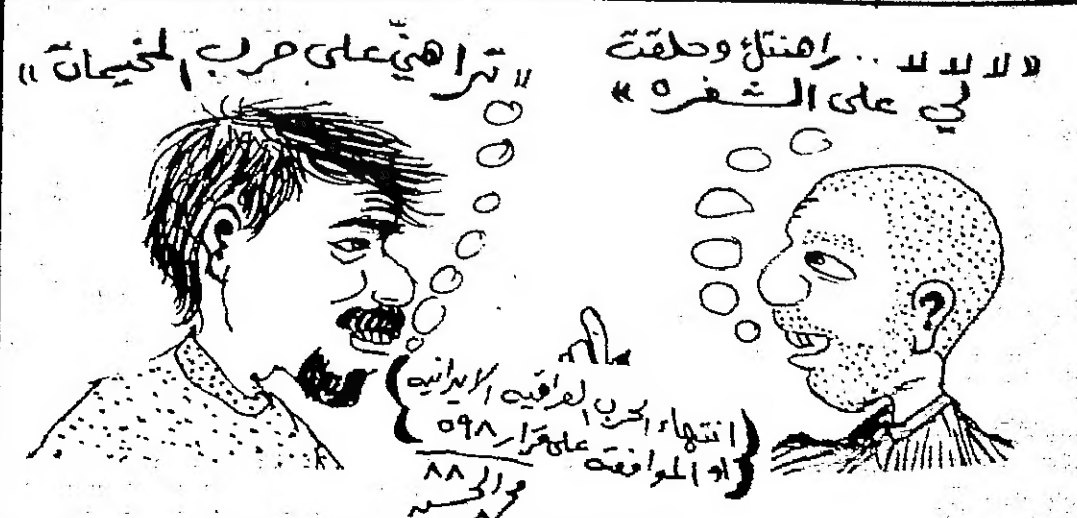 « لا لا لا .. راهنتك وحلقت
لي على الشفره »
« تراهني على حرب المخيمات »
(انتهاء الحرب العراقيه الايرانيه)
(او الموافقه على قرار ٥٩٨)
٨٨